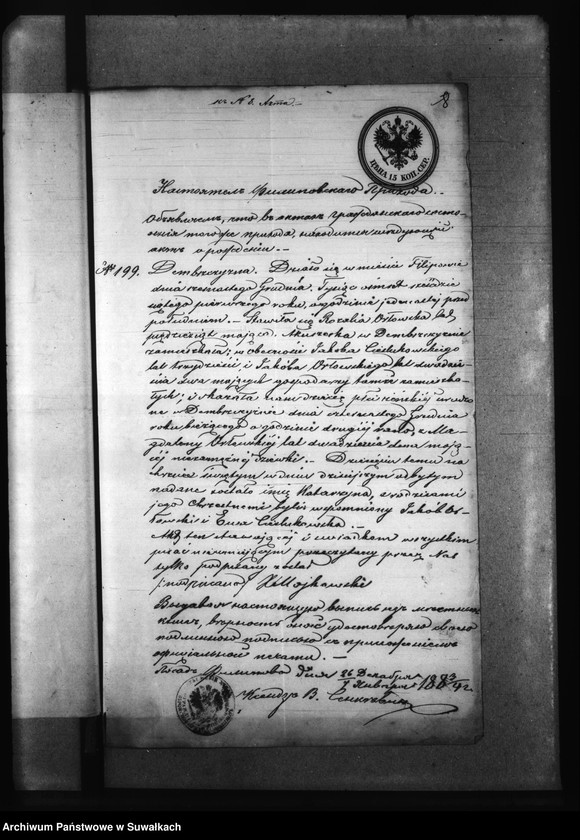 къ № 8. Акта
8
ЦѢНА 15 КОП. СЕР.
Настоятель Филиповскаго Прихода.
Объявляетъ, что въ актахъ гражданскаго состо-
янія тогоже прихода, находится слѣдующій
актъ о рожденіи. —
№ 199. Dembszczyzna. Działo się w mieście Filipowie
dnia Grudnia, Tysiąc ośmset
pierwszego roku, o godzinie jedenastej przed
południem. — Stawiła się Rozalia Orłowska lat
pięćdziesiąt mająca Akuszerka w Dembszczyznie
zamieszkała; w obecności Jakóba Cieślukowskiego
lat trzydzieści i Jakóba Orłowskiego lat dwadzie-
ścia dwa mających gospodarzy tamże zamieszka-
łych, i okazała nam dziecię płci żeńskiej urodzo-
ne w Dembszczyznie dnia czternastego Grudnia
roku bieżącego o godzinie drugiej rano, z Ma-
gdaleny Orłowskiej lat dwadzieścia dwa mają-
cej niezamężnej dziewki. — Dziecięciu temu na
chrzcie świętym w dniu dzisiejszym odbytym
nadane zostało imię Katarzyna, a rodzicami
jego chrzestnemi byli wspomniony Jakób Or-
łowski i Ewa Cieślukowska. —
Akt ten stawającej i świadkom wszystkim
pisać nieumiejącym przeczytany przez Nas
tylko podpisany został
/podpisano/ X Wojkowski
Выдавая настоящую выпись изъ мѣстныхъ
книгъ, вѣрность оной удостовѣряю
подписью съ приложеніемъ
оффиціальной печати. —
Посадъ Филипово дня 26 Декабря / 7 Января 1883/4 г.
Ксендзъ В.
Archiwum Państwowe w Suwałkach